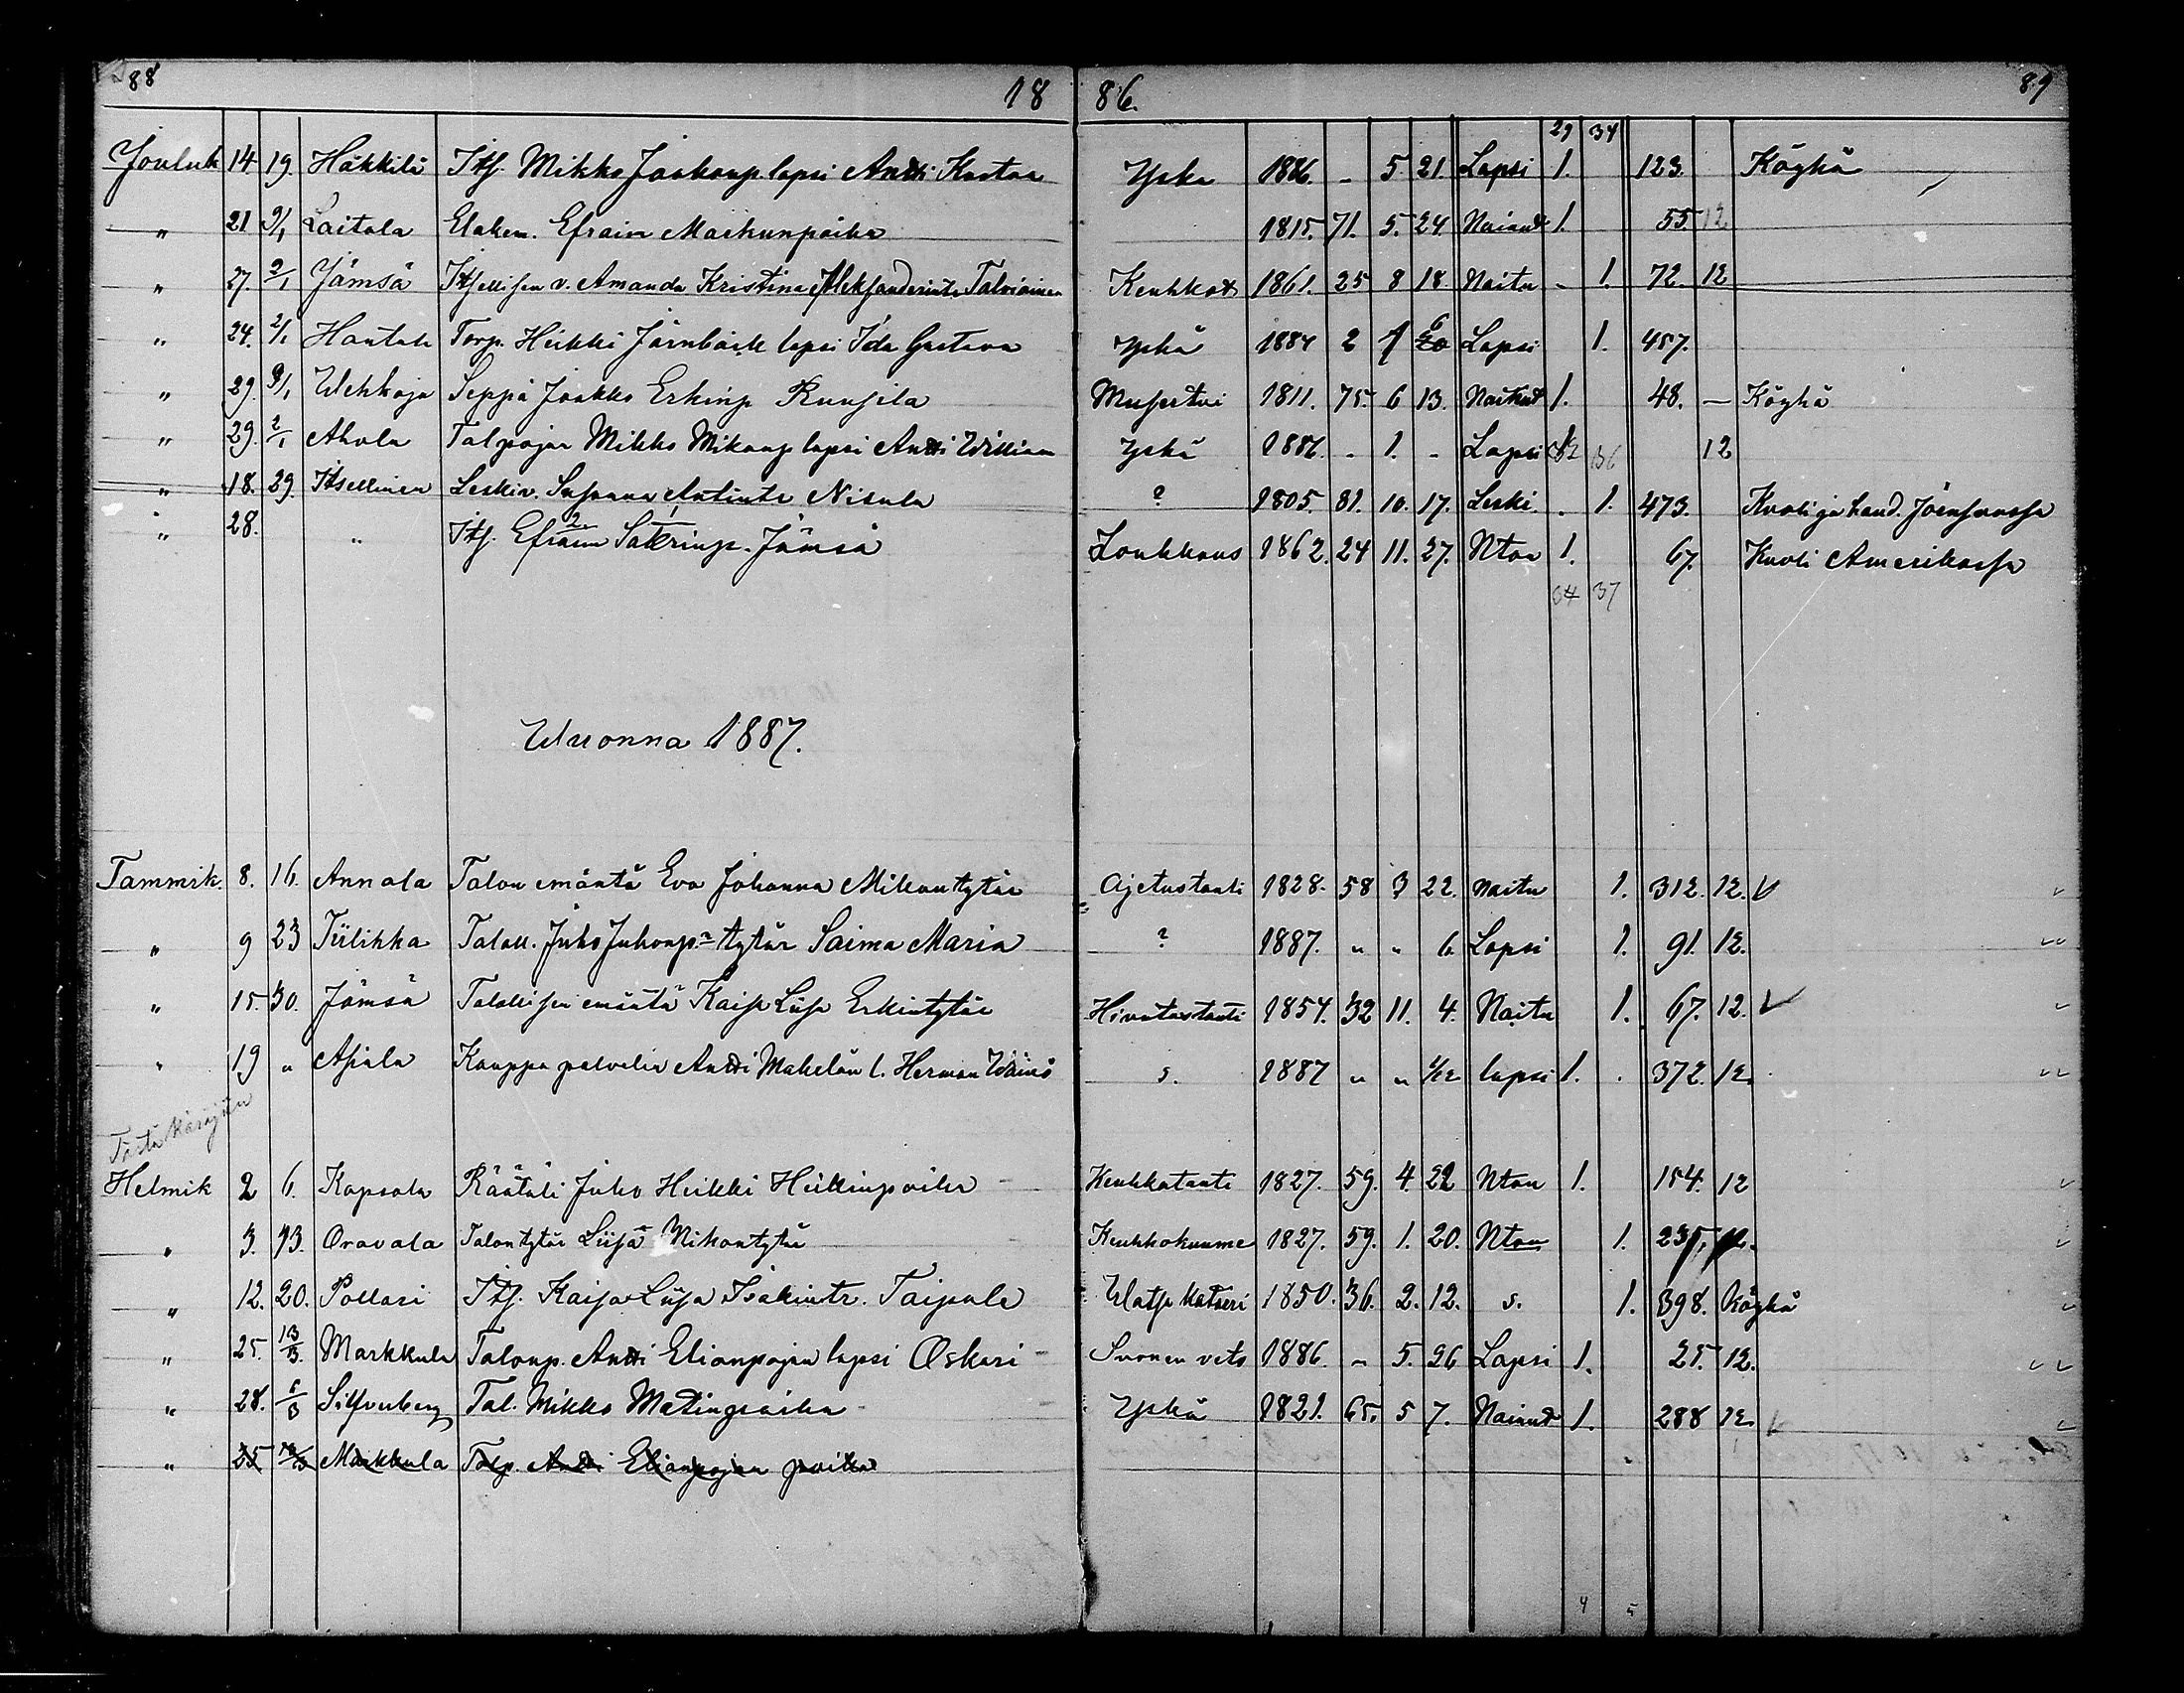 88 18 86. 89
29 34
Jouluk 14 19. Häkkilä Its. Mikko Jaakonp. lapsi Antti Kustaa Yskä 1886. - 5. 21. Lapsi 1. 123. Köyhä
" 21 9/1 Laitala Elaken. Efraim Markunpoika 1815. 71. 5. 24. Nainut 1. 55. 12
" 27. 2/1 Jämsä Itsellisen v. Amanda Kristina Aleksanderintr Talviainen Keuhkot 1861. 25 8 18. Naitu - 1. 72. 12
" 24. 2/1 Hautak Torp. Heikki Järnbäck lapsi Ida Gustava Yskä 1884 2 1 6 Lapsi 1. 457.
" 29. 9/1 Wehkoja Seppä Jaakko Erkinp Ruusila 1811. 75. 6 13. Nainut 1. 48. — Köyhä
" 29. 2/1 Ahola Talpojan Mikko Mikonp lapsi Antti William Yskä 1886. - 1. - Lapsi 36 12
" 18. 29. Itsellinen Leskiv. Susanna Antintr Nisula ? 1805. 81. 10. 17. Leski. . 1. 473. Kuoli ja haud.
" 28. " Its. Efraim Sakrinp. Jämsä Loukkaus 1862. 24 11. 27. Nton 1. 67. Kuoli Amerikassa
34 37
Wuonna 1887.
Tammik. 8. 16. Annala Talon emäntä Eva Johanna Mikontytär Ajetustauti 1828. 58 3 22. naitu 1. 312. 12.
" 9 23 Tiilikka Talall. Juho Juhonp. tytär Saima Maria ? 1887. " " 6. Lapsi 1. 91. 12.
" 15. 30. Jämsä Talollisen emäntä Kaisa Liisa Erkintytär Hivutustauti 1854. 32 11. 4. Naitu 1. 67. 12.
" 19 " Asiala Kauppa palvelia Antti Makelän l. Herman Wäinö s. 1887 " " 1/12 lapsi 1. . 372. 12.
Tästä käräjiin
Helmik 2 6. Kapsala Räätäli Juho Heikki Heikinpoika Keuhkotauti 1827. 59. 4. 22 Nton 1. 154. 12
" 3. 13. Oravala Talontytär Liisa Mikontytär Keuhkokuume 1827. 59. 1. 20. Nton 1. 235. 12.
" 12. 20. Pollari Its. Kaisa Liisa Isakintr. Taipale Watsa katarri 1850. 36. 2. 12. s. 1. 398. Köyhä
" 25. 13/3. Markkula Talonp. Antti Elianpojan lapsi Oskari Suonen veto 1886. " 5. 26 Lapsi 1. 25. 12.
" 28. 6/3 Silfverberg Tal. Mikko Matinpoika Yskä 1821. 65. 5 7. Nainut 1. 288 12.
" 25 13/3 Markkula Talp. Antti Elianpojan poika
4 5